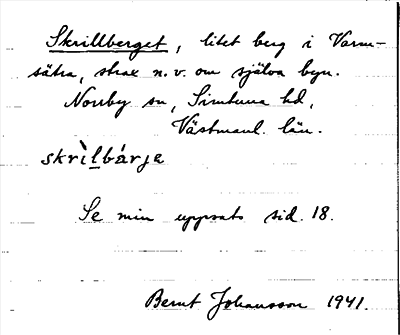 Skrillberget, litet berg i Varm-
sätra, strax n.v. om själva byn.
Norrby sn, Simtuna hd,
Västmanl. län.
skrìl̲bárjɐ
Se min uppsats sid. 18.
Bernt Johansson 1941.